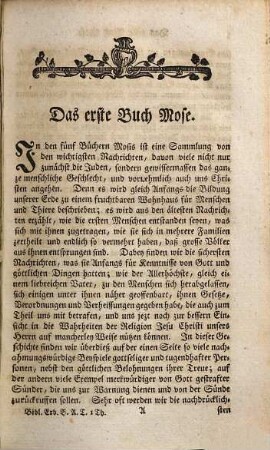 Das erste Buch Mose.
In den fünf Büchern Mosis ist eine Sammlung von
den wichtigsten Nachrichten, davon viele nicht nur
zunächst die Juden, sondern gewissermaßen das gan-
ze menschliche Geschlecht, und vornehmlich auch uns Chri-
sten angehen. Denn es wird gleich Anfangs die Bildung
unserer Erde zu einem fruchtbaren Wohnhaus für Menschen
und Thiere beschrieben; es wird aus den ältesten Nachrich-
ten erzählt, wie die ersten Menschen entstanden seyen, was
sich mit ihnen zugetragen, wie sie sich in mehrere Familien
zertheilt und endlich so vermehret haben, daß große Völker
aus ihnen entsprungen sind. Dabey finden wir die sichersten
Nachrichten, was sie Anfangs für Kenntnisse von Gott und
göttlichen Dingen hatten; wie der Allerhöchste, gleich
einem liebreichen Vater, zu den Menschen sich herabgelassen,
sich einigen unter ihnen näher geoffenbaret, ihnen Gesetze,
Verordnungen und Verheissungen gegeben habe, die auch zum
Theil uns mit betrafen, und uns jezt noch zur bessern Ein-
sicht in die Wahrheiten der Religion Jesu Christi unsers
Herrn auf mancherley Weise nützen können. In dieser Ge-
schichte finden wir überdieß auf der einen Seite so viele nach-
ahmungswürdige Beyspiele gottseliger und tugendhafter Per-
sonen, nebst den göttlichen Belohnungen ihrer Treue; auf
der andern viele Exempel merkwürdiger von Gott gestrafter
Sünder, die uns zur Warnung dienen und von der Sünde
zurückrufen sollen. Sehr oft werden wir die nachdrücklich-
Bibl. Erb. B. A. T. 1 Th. A sten